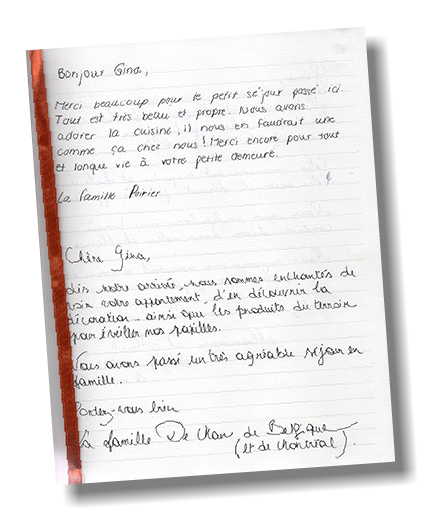 Bonjour Gina,
Merci beaucoup pour le petit séjour passé ici.
Tout est très belle et propre. Nous avons
adorer la cuisine, il nous en faudrait une
comme ça chez nous! Merci encore pour tout
et longue vie à votre petite demeure.
La famille Poirier
Chère Gina,
dès notre arrivée, nous sommes enchantés de
voir votre appartement, d'en découvrir la
décoration ainsi que les produits du terroir
pour éveiller nos papilles.
Nous avons passé un très agréable séjour en
famille.
Portez-vous bien
La famille De de Belgique
(et de Montréal).